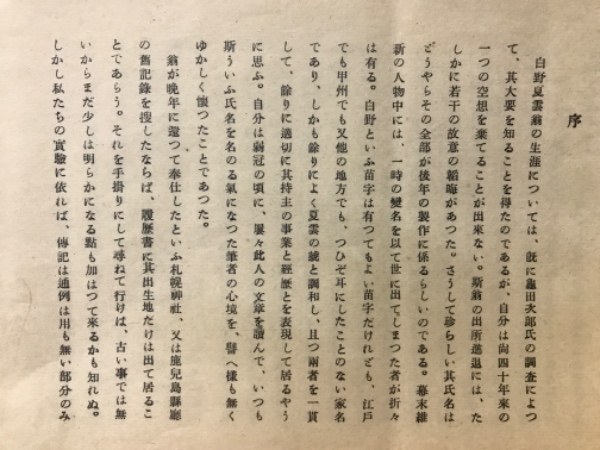 序
白野夏雲翁の生涯については、既に龜田次郎氏の調査によつ
て、其大要を知ることを得たのであるが、自分は尙四十年來の
一つの空想を棄てることが出來ない。斯翁の出所進退には、た
しかに若干の故意の韜晦があつた。さうして珍らしい其氏名は
どうやらその全部が後年の製作に係るらしいのである。幕末維
新の人物中には、一時の變名を以て世に出てしまつた者が折々
は有る。白野といふ苗字は有つてもよい苗字だけれども、江戶
でも甲州でも又他の地方でも、つひぞ耳にしたことのない家名
であり、しかも餘りによく夏雲の號と調和し、且つ兩者を一貫
して、餘りに適切に其持主の事業と經歷とを表現して居るやう
に思ふ。自分は弱冠の頃に、屢々此人の文章を讀んで、いつも
斯ういふ氏名を名のる氣になつた筆者の心境を、譬へ樣も無く
ゆかしく懷つたことであつた。
翁が晚年に還つて奉仕したといふ札幌神社、又は鹿兒島縣廳
の舊記錄を搜したならば、履歷書に其出生地だけは出て居るこ
とであらう。それを手掛りにして尋ねて行けば、古い事では無
いからまだ少しは明らかになる點も加はつて來るかも知れぬ。
しかし私たちの實驗に依れば、傳記は通例は用も無い部分のみ